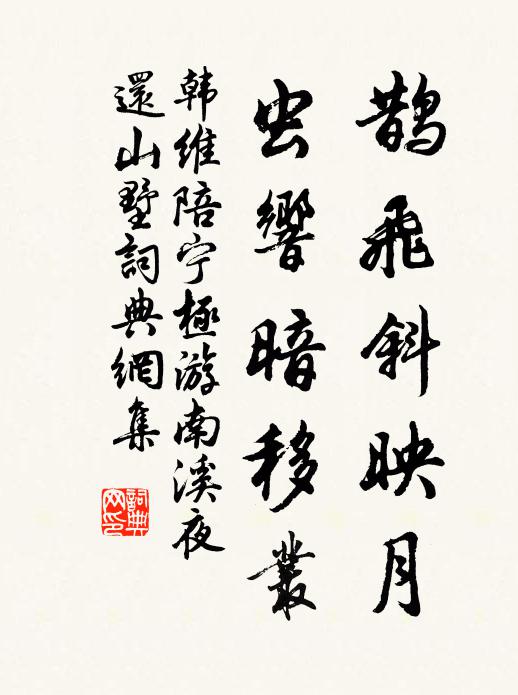 鵲飛斜映月
虫響暗移叢
韩維陪宁極游南溪夜
還山墅詞典網集
詞典网印